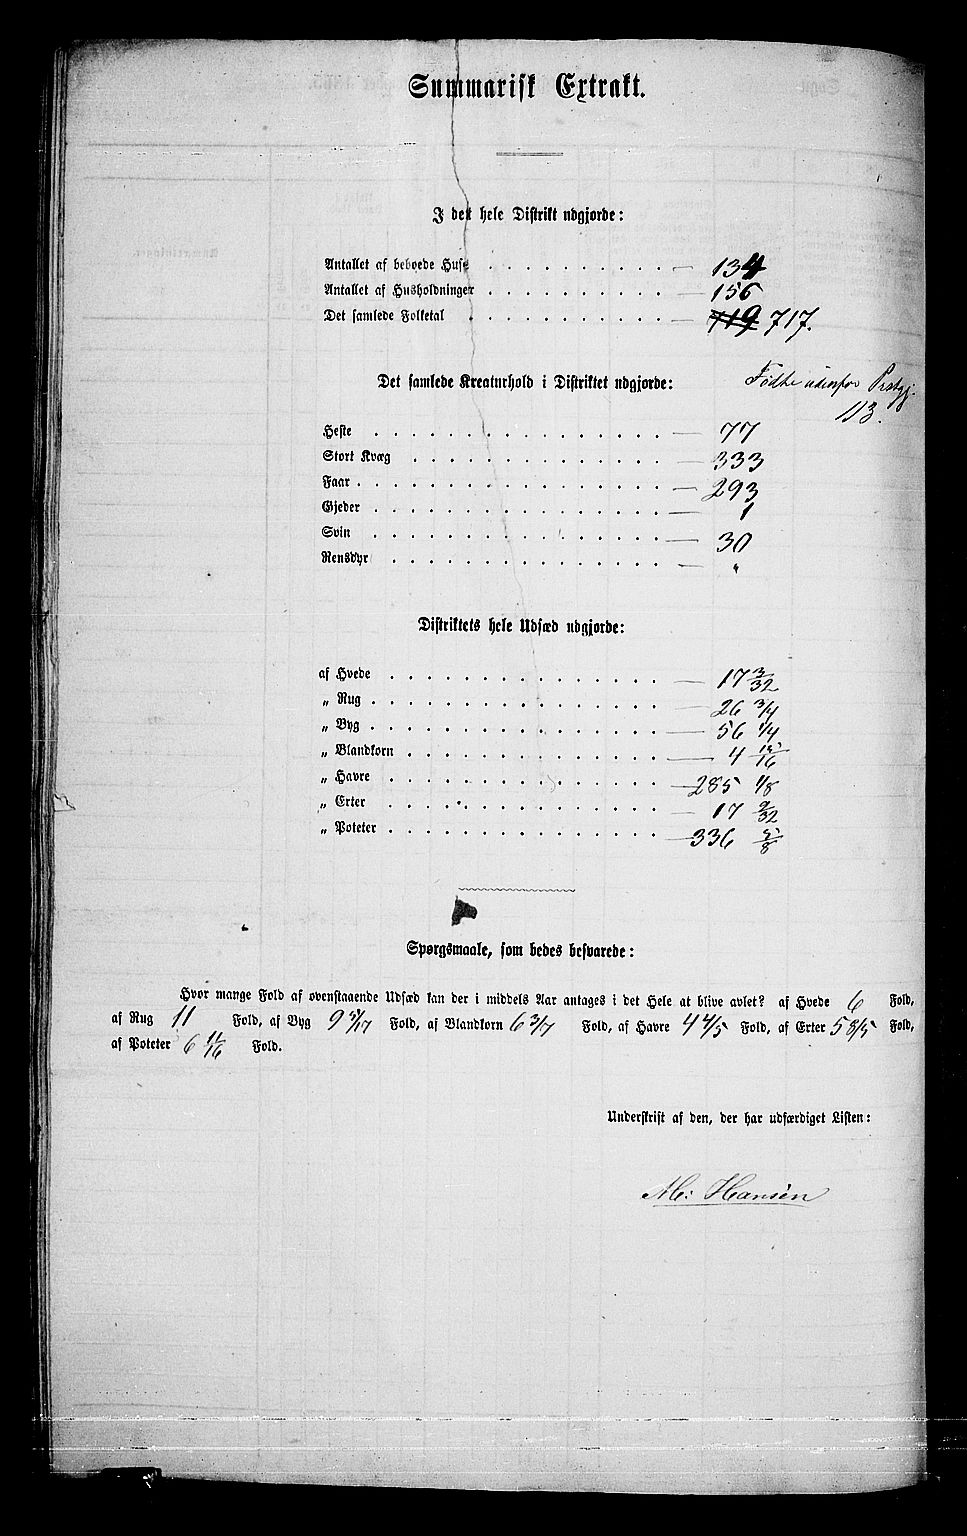 Summarisk Extrakt.
I det hele Distrikt udgjorde:
Antallet af beboede Huse 134
Antallet af Husholdninger 156
Det samlede Folketal 719 717.
Det samlede Kreaturhold i Distriktet udgjorde:
Fødte udenfor Prstgj.
113.
Heste 77
Stort Kvæg 333
Faar 293
Gjeder 1
Svin 30
Rensdyr "
Distriktets hele Udsæd udgjorde:
af Hvede 17 3/32
„ Rug 26 3/4
„ Byg 56 1/4
„ Blandkorn 4 15/16
„ Havre 285 1/8
„ Erter 17 9/32
„ Poteter 336 5/8
Spørgsmaale, som bedes besvarede:
Hvor mange Fold af ovenstaaende Udsæd kan der i middels Aar antages i det Hele at blive avlet? af Hvede 6 Fold,
af Rug 11 Fold, af Byg 9 Fold, af Blandkorn 6 3/7 Fold, af Havre 4 4/5 Fold, af Erter 5 Fold,
af Poteter 6 11/16 Fold.
Underskrift af den, der har udfærdiget Listen:
Hansen